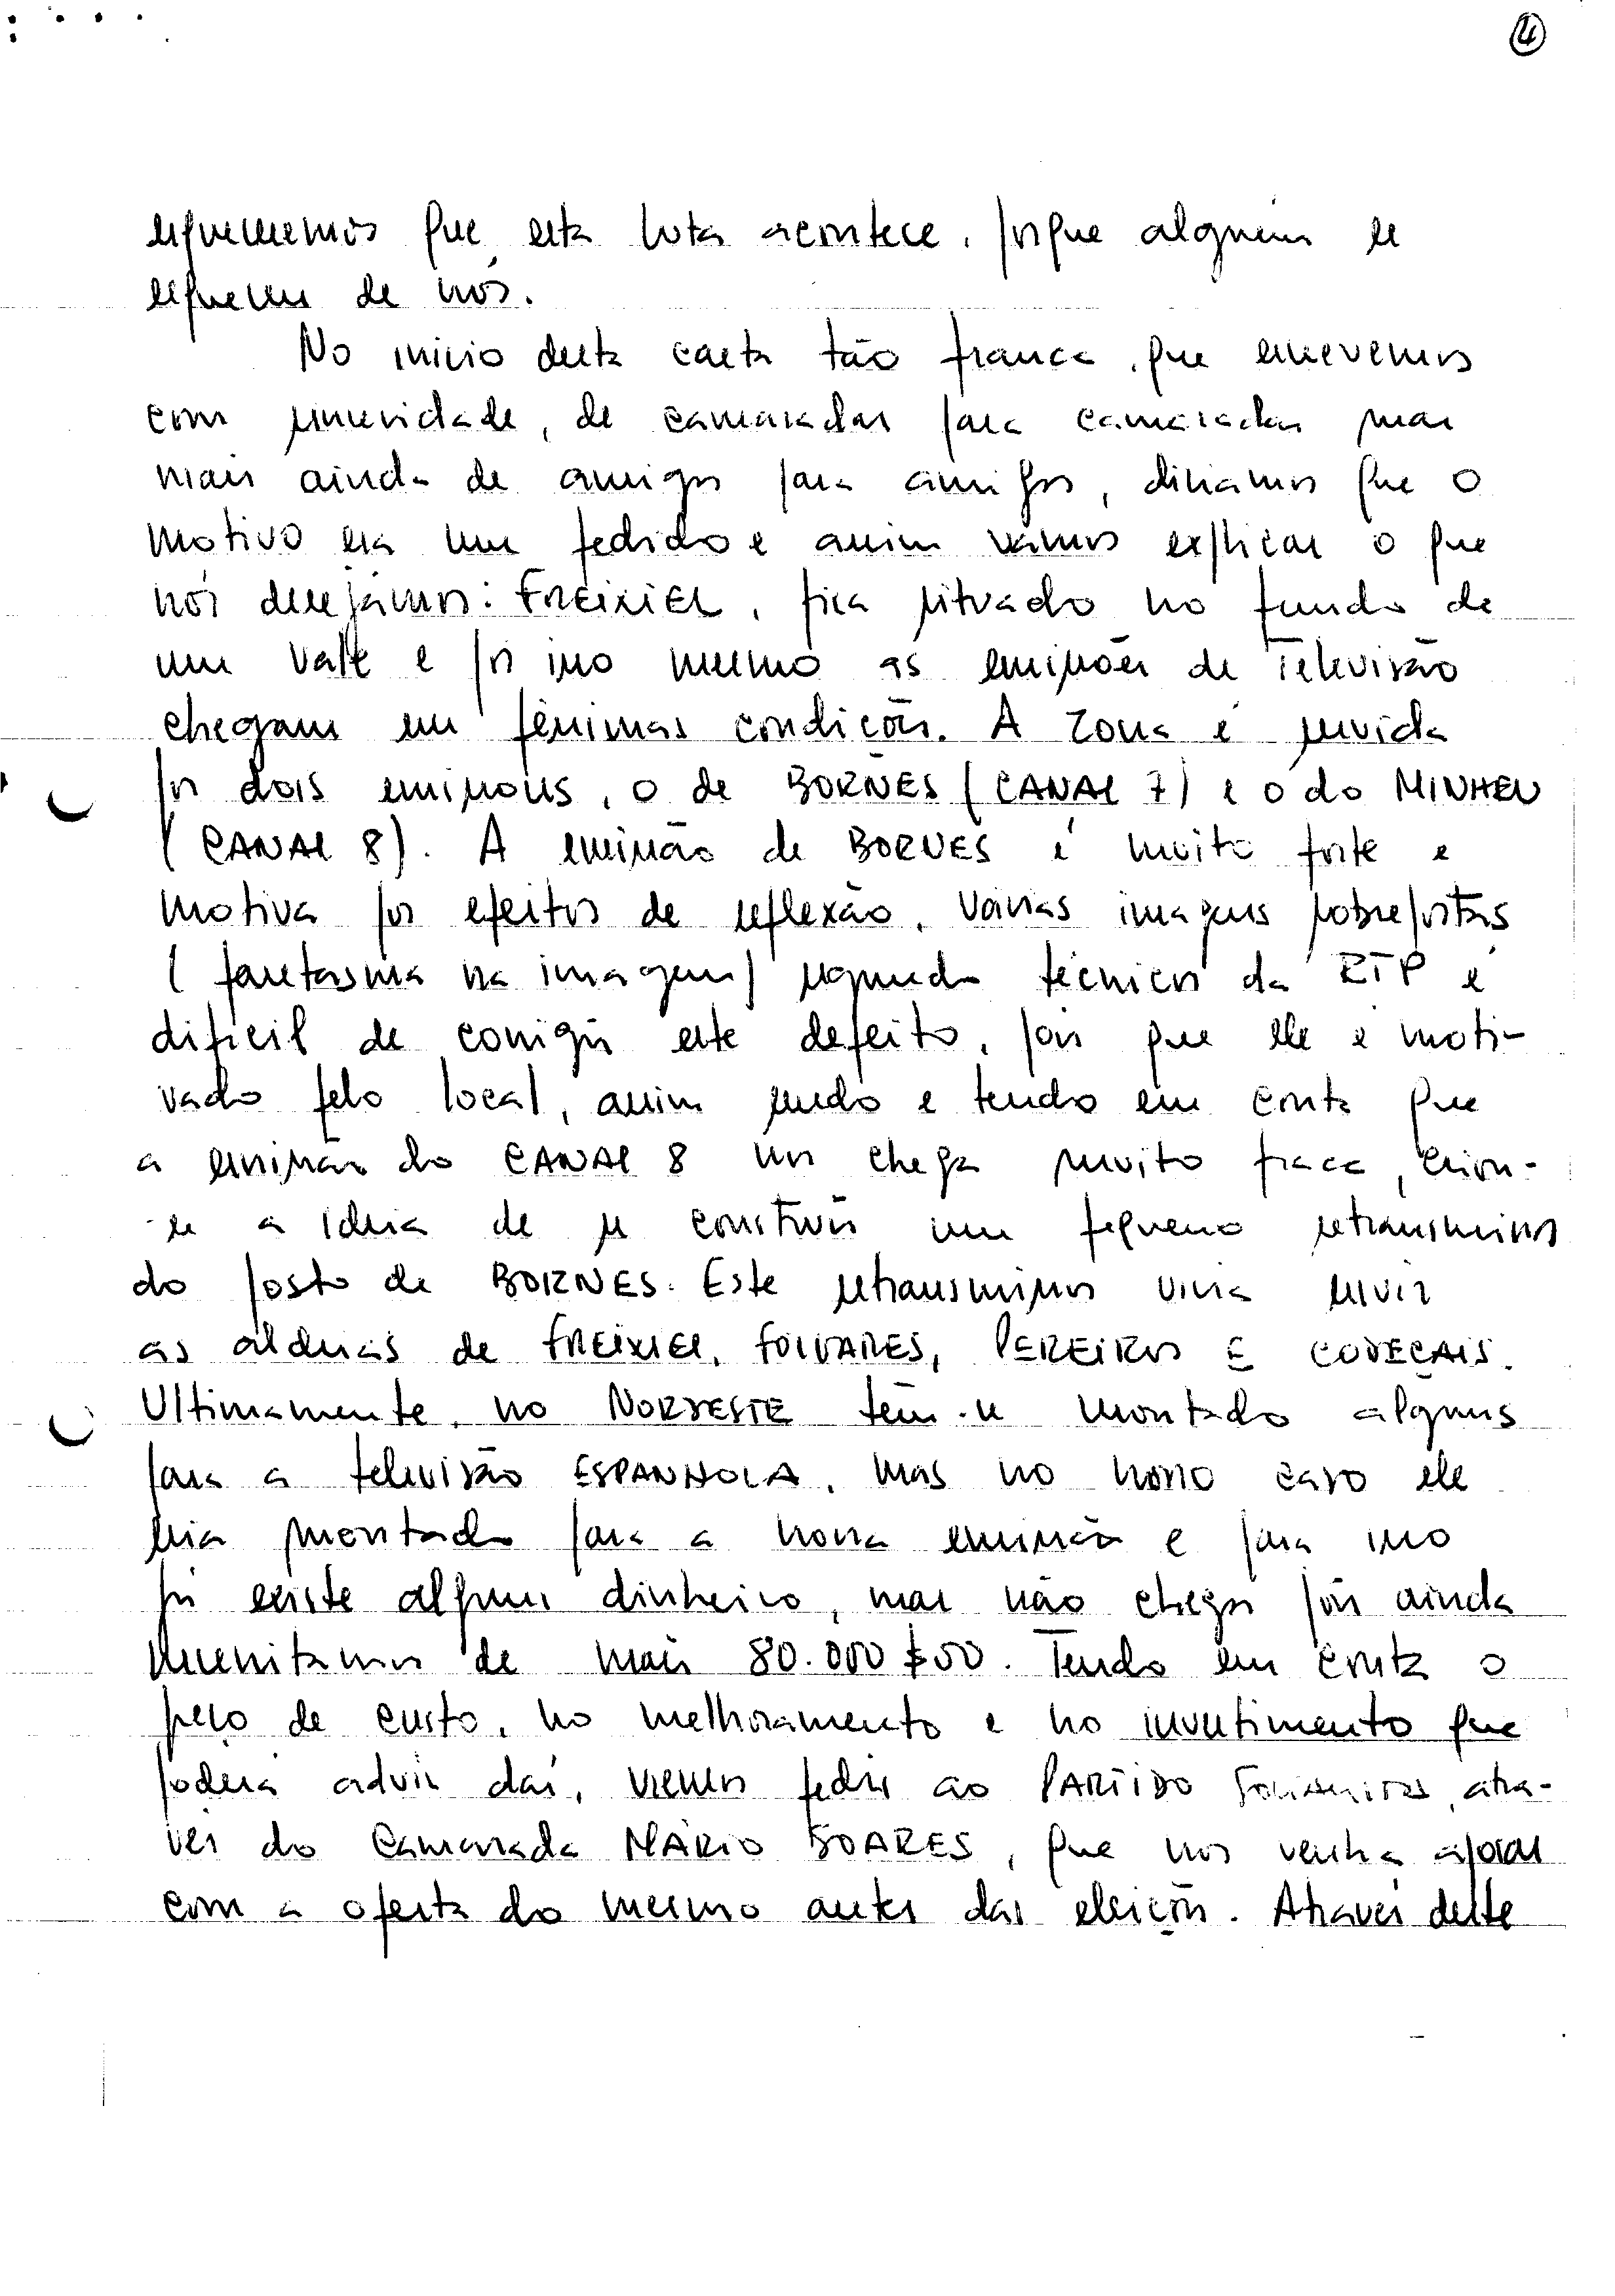 4
esquecemos que esta luta acontece, porque alguém se
esqueceu de nós.
No inicio desta carta tão franca, que escrevemos
com sinceridade, de camaradas para camaradas mas
mais ainda de amigos para amigos, diziamos que o
motivo era um pedido e assim vamos explicar o que
nós desejamos: FREIXIEL, fica situado no fundo de
um vale e por isso mesmo as emissões de Televisão
chegam em péssimas condições. A zona é servida
por dois emissores, o de BORNES (CANAL 7) e o do MINHEU
(CANAL 8). A emissão de BORNES é muito forte e
motiva por efeitos de reflexão, várias imagens sobrepostas
(fantasma na imagem) segundo técnicos da RTP é
dificil de corrigir este defeito, pois que ele é moti-
vado pelo local, assim sendo e tendo em conta que
a emissão do CANAL 8 nos chega muito fraca, criou-
-se a ideia de se construir um pequeno retransmissor
do posto de BORNES. Este retransmissor viria servir
as aldeias de FREIXIEL, FOLGARES, PEREIROS E CODEÇAIS.
Ultimamente, no NORDESTE têm-se montado alguns
para a televisão ESPANHOLA, mas no nosso caso ele
seria montado para a nossa emissão e para isso
já existe algum dinheiro, mas não chega pois ainda
necessitamos de mais 80.000$00. Tendo em conta o
preço de custo, no melhoramento e no investimento que
poderá advir daí, viemos pedir ao PARTIDO SOCIALISTA, atra-
vés do Camarada MÁRIO SOARES, que nos venha apoiar
com a oferta do mesmo antes das eleições. Através deste